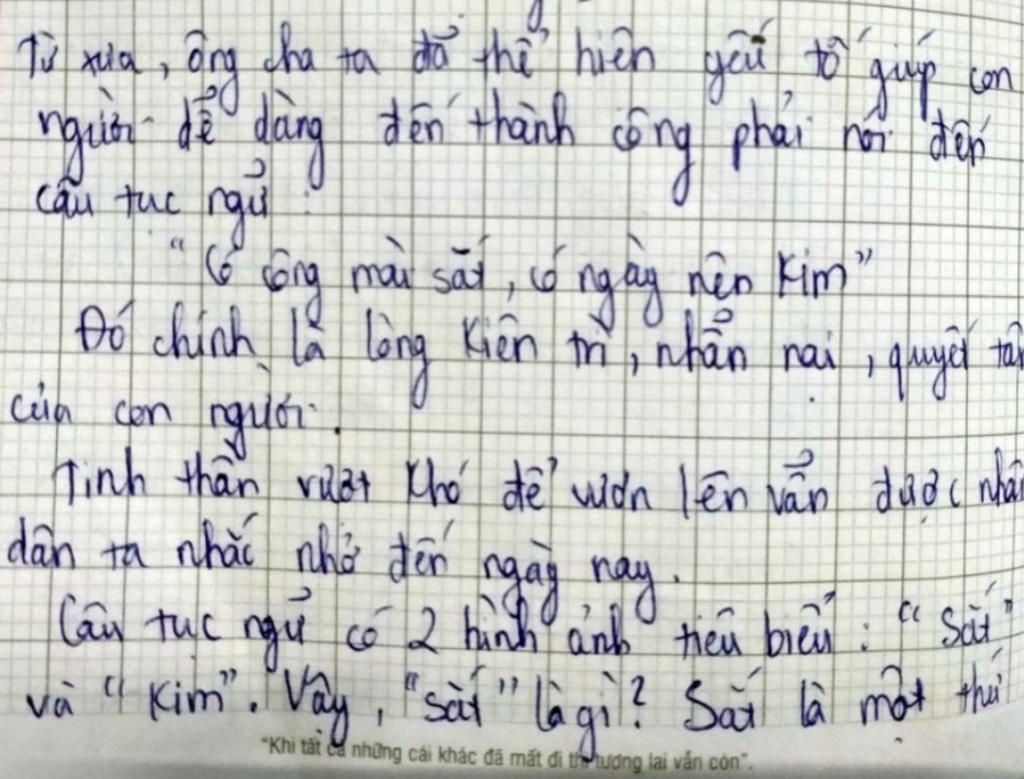 Từ xưa, ông cha ta đã thể hiện yếu tố giúp con
người dễ dàng đến thành công phải nói đến
câu tục ngữ:
"Có công mài sắt, có ngày nên kim"
Đó chính là lòng kiên trì, nhẫn nại, quyết tâm
của con người.
Tinh thần vượt khó để vươn lên vẫn được nhân
dân ta nhắc nhở đến ngày nay.
Câu tục ngữ có 2 hình ảnh tiêu biểu: "Sắt"
và "Kim". Vậy, "sắt" là gì? Sắt là một thứ
"Khi tất cả những cái khác đã mất đi thì tương lai vẫn còn".